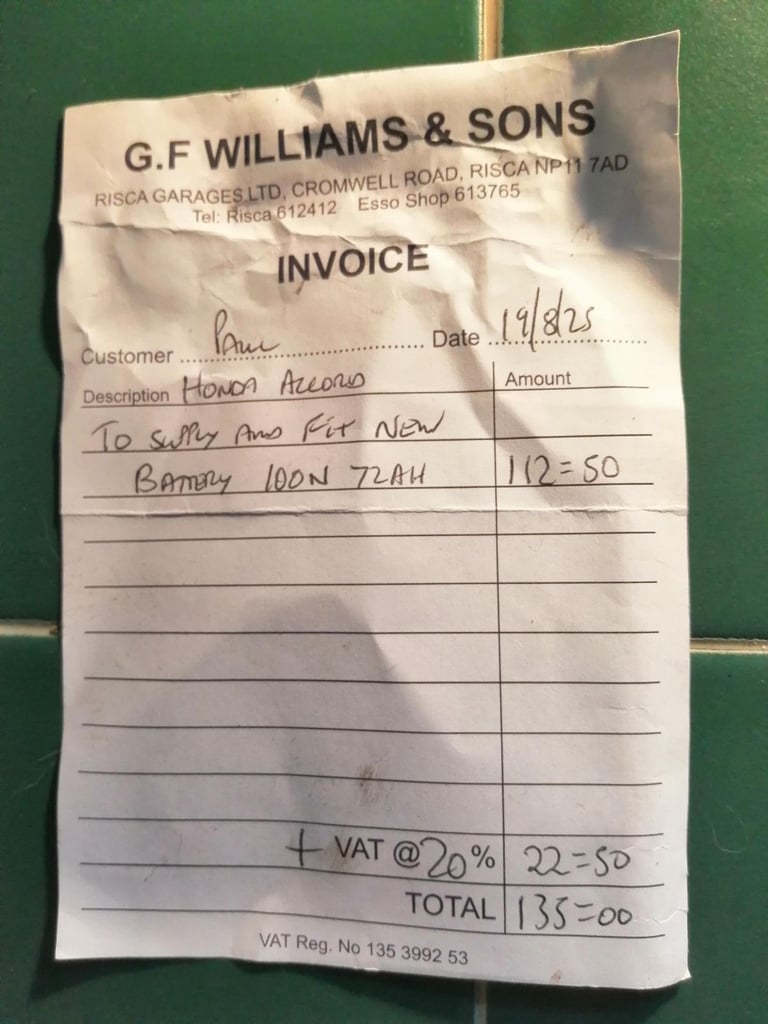 G.F WILLIAMS & SONS
RISCA GARAGES LTD, CROMWELL ROAD, RISCA NP11 7AD
Tel: Risca 612412 Esso Shop 613765
INVOICE
Customer Paul Date 19/8/25
Description HONDA ACCORD Amount
TO SUPPLY AND FIT NEW
BATTERY 100N 72AH 112=50
+ VAT @ 20% 22=50
TOTAL 135=00
VAT Reg. No 135 3992 53